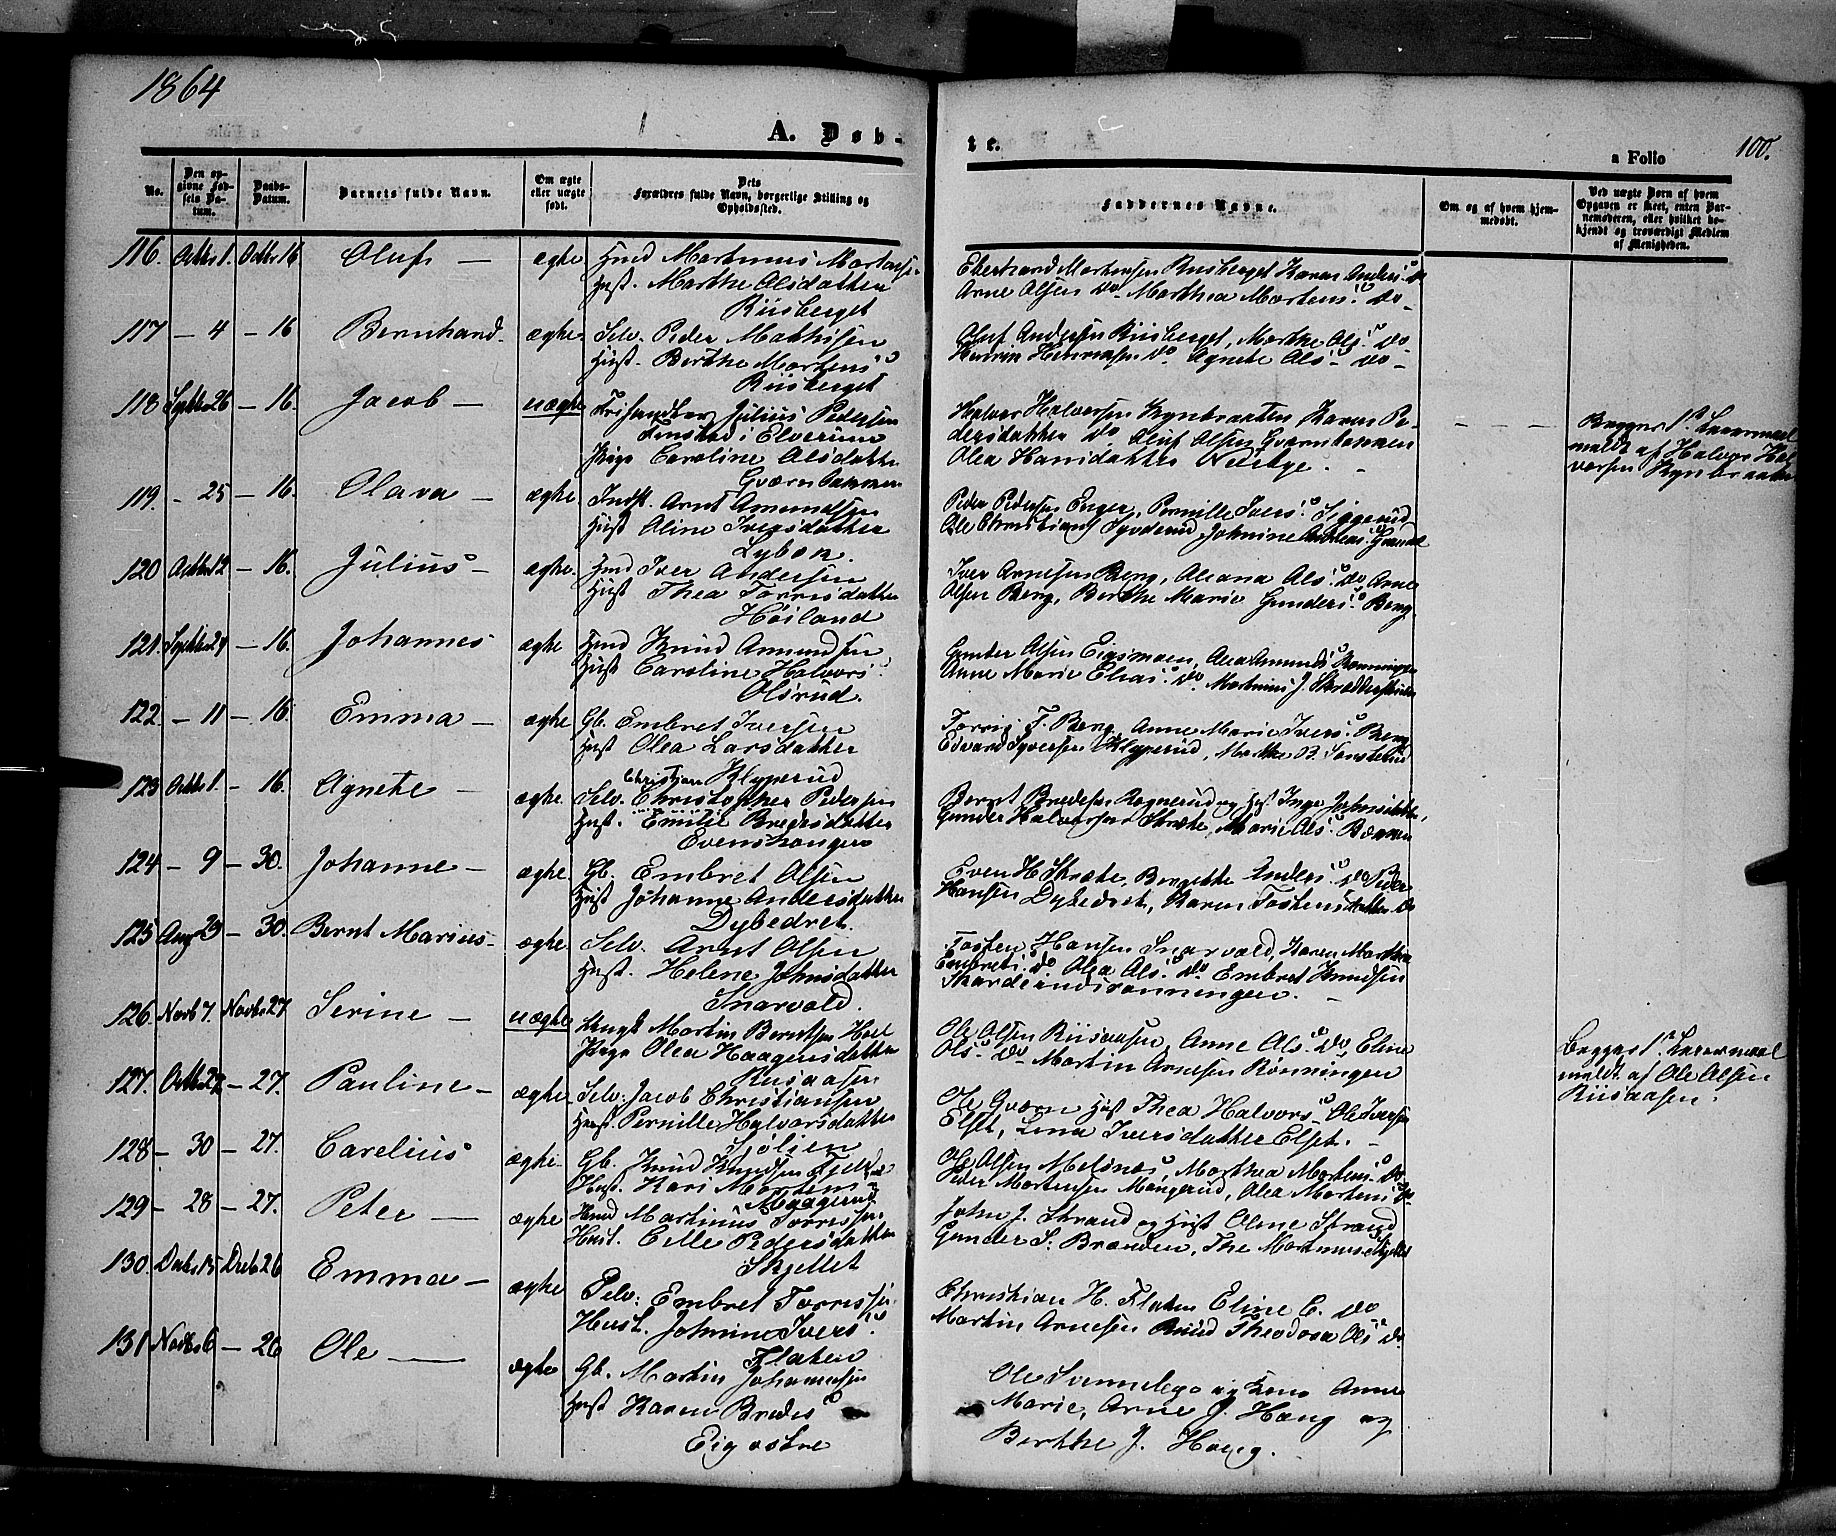 1864
A. Døb-
te.
a Folio
100.
No.
Den opgivne Fødsels Datum.
Daabs-Datum.
Barnets fulde Navn.
Om ægte eller uægte født.
Dets Forældres fulde Navn, borgerlige Stilling og Opholdssted.
Faddernes Navne.
Om og af hvem hjemmedøbt.
Ved uægte Børn af hvem Opgaven er skeet, enten Barnemoderen, eller hvilket bekjendt og troværdigt Medlem af Menigheden.
116. Octbr 1. Octbr 16 Oluf — ægte Hmd Martinus Mortensen
Hust. Marthe Olsdatter
Riisberget
Arne Olsen do. Marthea Mortens. do.
117 – 4 – 16 Bernhard. ægte. Selv. Peder Mathisen
Hust. Berthe Mortens
Riisberget
Oluf Andersen Riisberget, Marthe Ols. do
Henrik do Agnete Ols. do –
118 Septbr 26 – 16. Jacob – uægte Julius Pedersen
i Elverum
Pige Caroline Olsdatter
Halvor Halvorsen Kynbraaten Karen Pe-
dersdatter do Oluf Olsen
Olea Hansdatter
Begges 1ste Leiermaal
meldt af Halvor Hal
vorsen Kynbraaten
119. – 25 – 16. Olava – ægte Indst. Arnt Amundsen
Hust Oline Iversdatter
Peder Pedersen Enger, Pernille Ivers.
Ole Christians Johnine
120 Octbr 12 – 16. Julius – ægte. Hmd Iver Andersen
Hust Thea Torrisdatter
Høiland
Iver Arnesen Berg, Oleana Ols. do Arne
Olsen Berg, Berthe Marie Gunders. Berg
121. Septbr 24 – 16. Johannes ægte Hmd Knud Amundsen
Hust Caroline Halvors.
Olsrud.
Gunder Olsen Eigsmoen, Olea Amunds Rønningen
Anne Marie Elias. do. Martinus J.
122. – 11 – 16. Emma – ægte Gb. Embret Iversen
Hust Olea Larsdatter
Klyperud
Torris T. Berg, Anne Marie Ivers. Berg
Edvard Syversen Klyperud, Marthe B.
123 Octbr 1. – 16. Agnete – ægte. Selv. Christopher Pedersen
Christian
Hust. Emilie Bredesdatter
Evenshaugen
Bernt Bredesen Rognerud og Hust Inge
Gunder Halvorsen Skræte, Marie Ols.
124 – 9 – 30. Johanne – ægte. Gb. Embret Olsen
Hust Johanne Andersdatter
Dybedret.
Even H. Skræte, Bergitte Anders. do Peder
Hansen Dybedret, Karen Tostensdatter do
125 Aug 23 – 30. Bernt Marius – ægte Selv. Arnt Olsen
Hust. Helene Johnsdatter
Snarvold.
Tosten Hansen Snarvold, Karen Marthea
Embrets. do Olea Ols. do. Embret Knudsen
126. Novb 7. Novbr 27 Serine – uægte Martin Berntsen
Pige Olea Haagensdatter
Riisaasen
Ole Olsen Riisaasen, Anne Ols. do, Eline
Ols. do Martin Arnesen Rønningen
Begges 1ste Leiermaal
meldt af Ole Olsen
Riisaasen.
127. Octbr 27 – 27. Pauline – ægte Selv: Jacob Christiansen
Hust. Pernille Halvorsdatter
Sjølien
Ole Gværn Hust Thea Halvors. Ole Iversen
Elset, Lena Iversdatter Elset.
128 – 30 – 27. Carelius ægte Gb. Knud Knudsen
Hust. Kari Mortens.
Ole Olsen Melsnes, Marthea Mortens. do
Peder Mortensen Maugerud, Olea Mortens. do
129 – 28 – 27. Peter — ægte Hmd Martinus Torrissen
Hust. Eille Pedersdatter
Skjellet
John J. Strand og Hust Oline Strand
Gunder S. Brænden,
130. Decbr 15 Decb 26 Emma – ægte Selv: Embret Torrissen
Hust. Johnine Ivers.
Flaten
Christian H. Flaten Eline C. do
Martin Arnesen Theodora Ols. do.
131 Novbr 6 – 26 Ole — ægte Gb. Martin Johannesen
Hust Karen Bredes.
Eig østre
Ole og Anne
Marie, Arne J. Haug og
Berthe J. Haug.